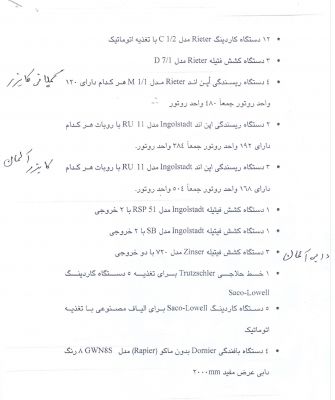 • ۱۲ دستگاه کاردینگ Rieter مدل C 1/2 با تغذیه اتوماتیک
• ۳ دستگاه کشش فتیله Rieter مدل D 7/1
• ۴ دستگاه ریسندگی اُپن اند Rieter مدل M 1/1 هر کدام دارای ۱۲۰
واحد روتور جمعاً ۴۸۰ واحد روتور
• ۲ دستگاه ریسندگی اپن اند Ingolstadt مدل RU 11 با روبات هر کدام
دارای ۱۹۲ واحد روتور جمعاً ۳۸۴ واحد روتور.
• ۳ دستگاه ریسندگی اپن اند Ingolstadt مدل RU 11 با روبات هر کدام
دارای ۱۶۸ واحد روتور جمعاً ۵۰۴ واحد روتور.
• ۱ دستگاه کشش فیتیله Ingolstadt مدل RSP 51 با ۲ خروجی
• ۱ دستگاه کشش فیتیله Ingolstadt مدل SB با ۲ خروجی
• ۲ دستگاه کشش فیتیله Zinser مدل ۷۲۰ با دو خروجی
• ۱ خط حلاجی Trutzschler برای تغذیه ۵ دستگاه گاردینگ
Saco-Lowell
• ۵ دستگاه کاردینگ Saco-Lowell برای الیاف مصنوعی با تغذیه
اتوماتیک
• ۴ دستگاه بافندگی Dornier بدون ماکو (Rapier) مدل GWN8S ۸ رنگ
دابی عرض مفید ۲۰۰۰mm
آلمان
آلمان